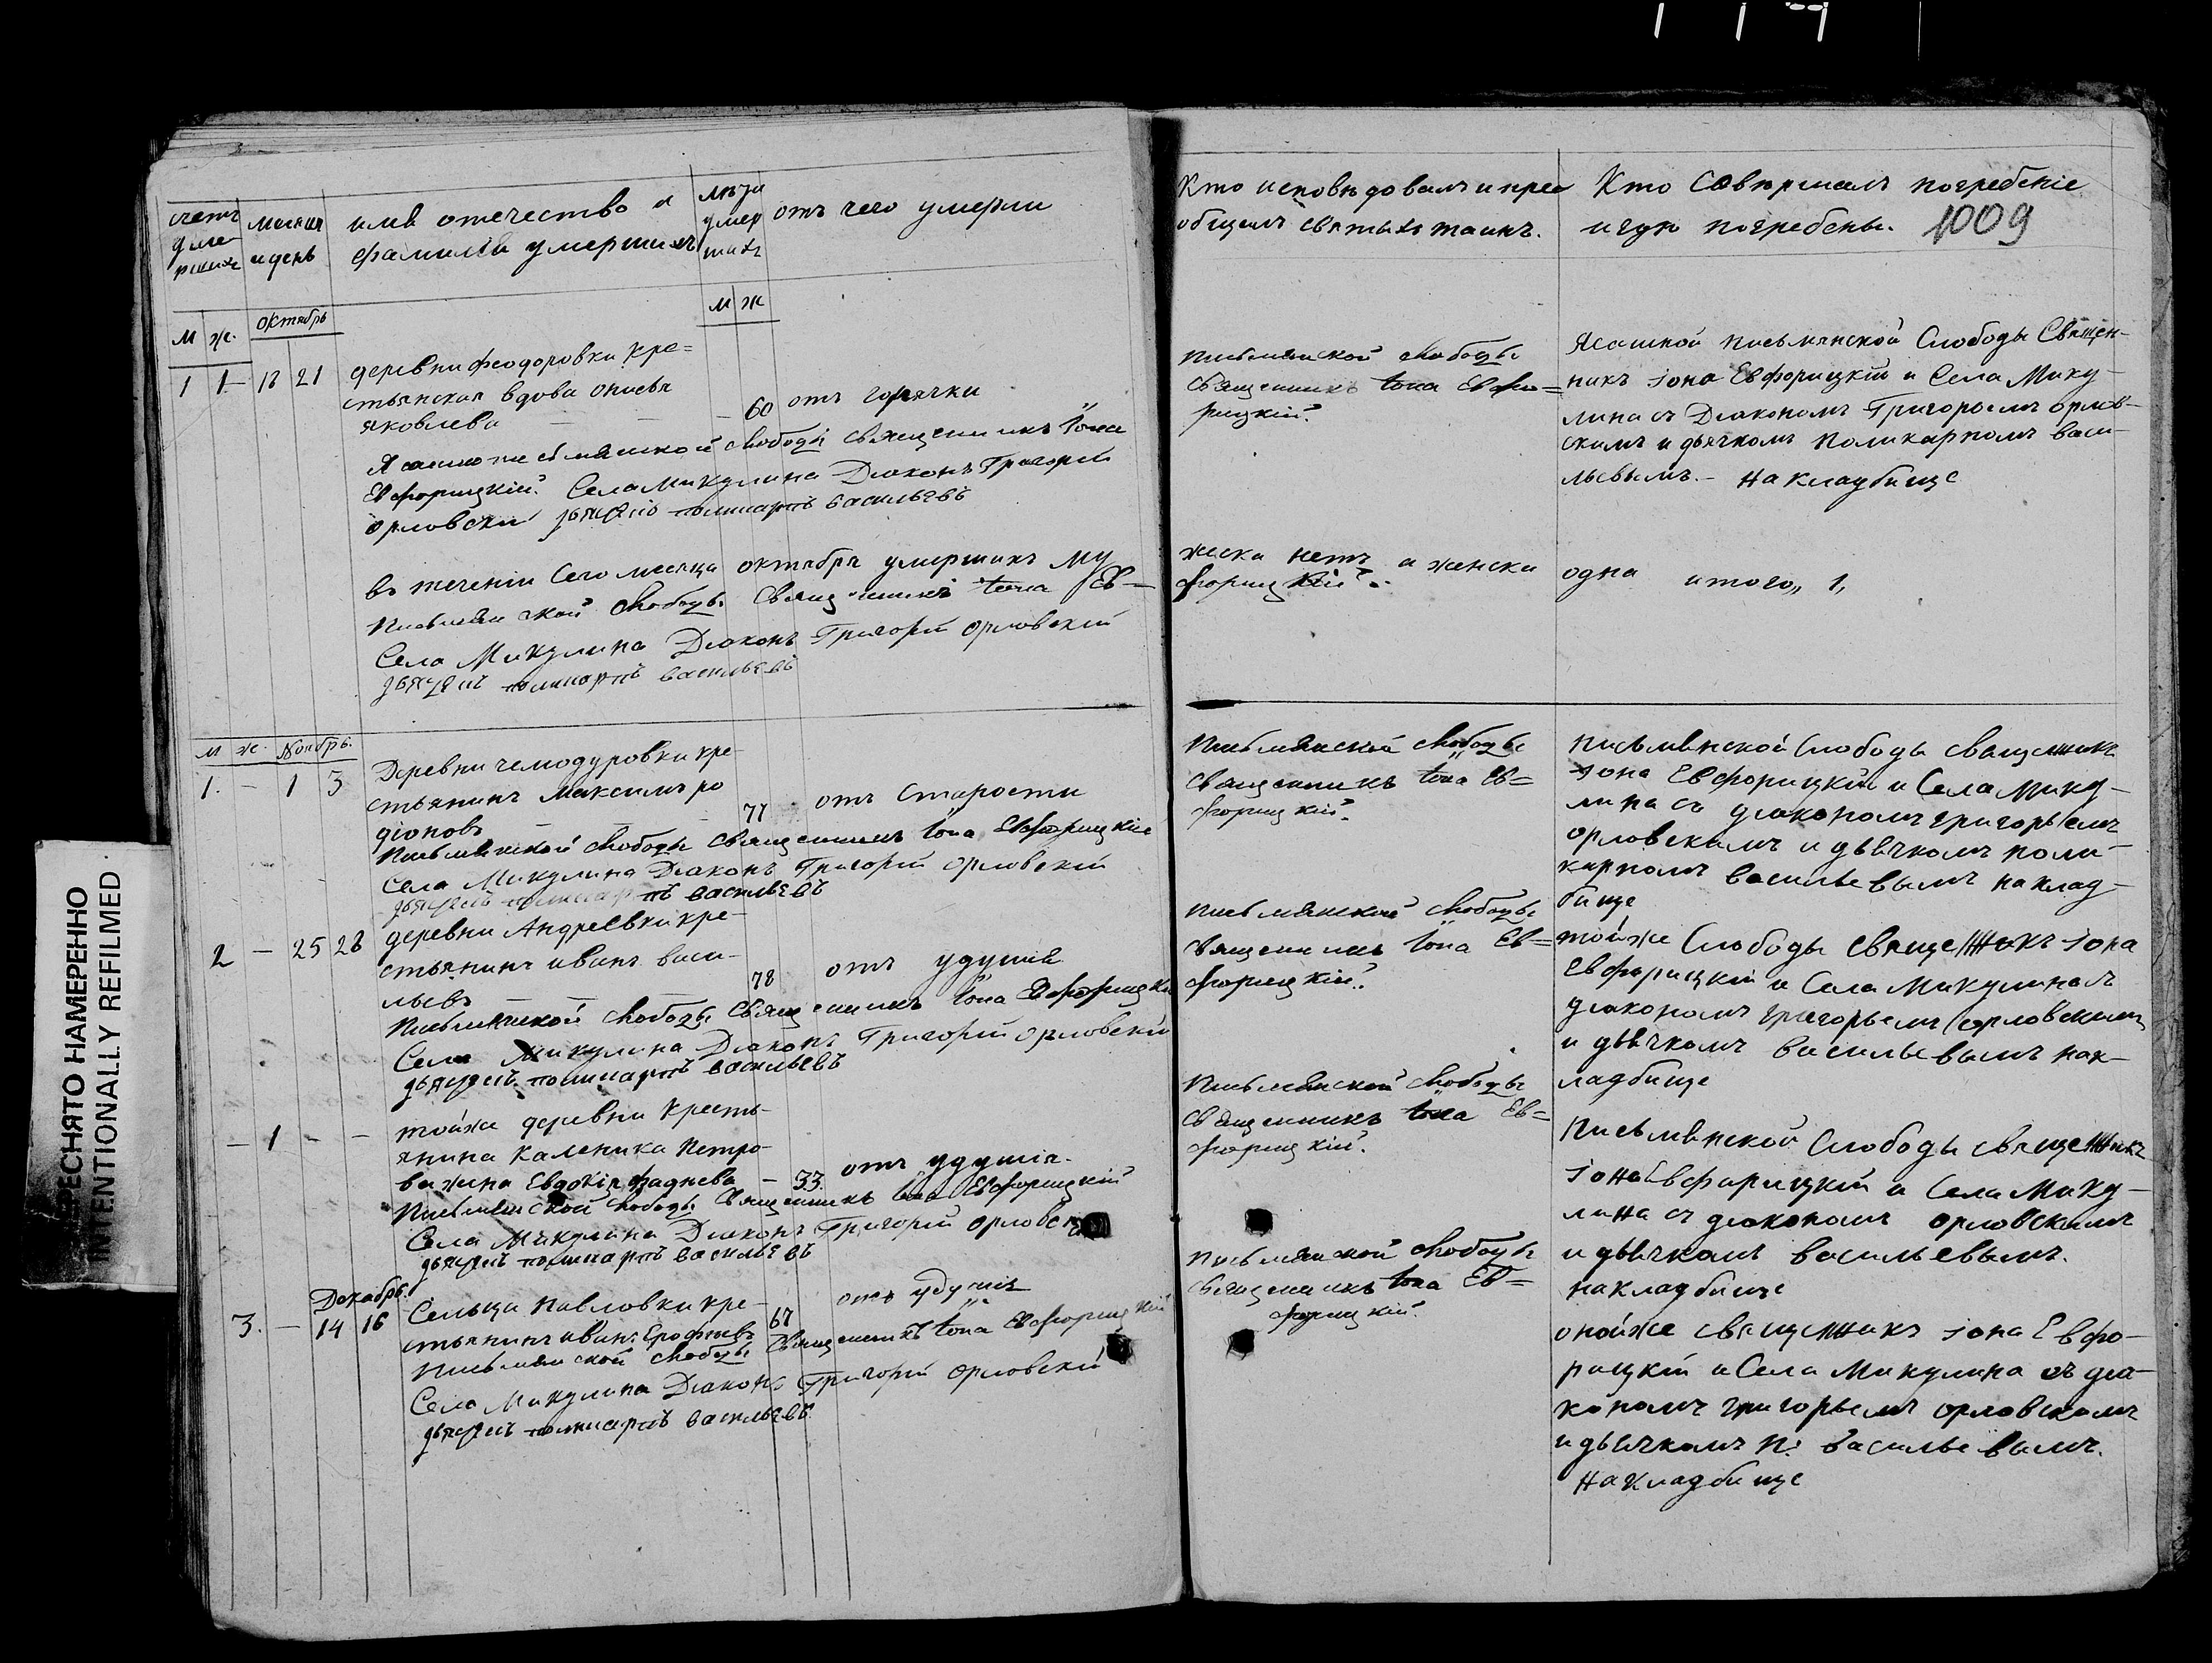 счетъ умершихъ
месяцъ и день
имя отечество и
фамилiя умершихъ
лѣта умершихъ
отъ чего умерли
Кто исповѣдовалъ и прео
общалъ святыхъ таинъ.
Кто Совершалъ погребенiе
и гдѣ погребены.
1009
м ж
м ж. октябрь
1 1 18 21
деревни феодоровки кре=
стьянская вдова
яковлева — — — 60 отъ горячки
священникъ Iона
Евфорицкiй. Села Микулина Дiаконъ Григорiй
орловскiй дьячекъ поликарпъ васильевъ
Письмянской слободы
священникъ Iона Евфо=
рицкiй.
Ясашной письмянской Слободы Священ-
никъ iона Евфорицкiй и Села Мику-
лина съ Дiакономъ Григорьемъ орлов-
скимъ и дьячкомъ поликарпомъ васи-
льевымъ. — На кладбище
въ теченiи Сего месяца октября умершихъ му
жеска нетъ а женска одна итого,, 1,
Письмянской слободы Священникъ Iона Ев=
форицкiй.
Села Микулина Дiаконъ Григорiй орловскiй
дьячекъ поликарпъ васильевъ
м ж. Ноябрь.
1. — 1 3
Деревни чемодуровки кре-
стьянинъ Максимъ ро
дiоновъ — — — 77 отъ Старости
Письмянской слободы священникъ Iона Евфорицкiй
Села Микулина Дiаконъ Григорiй орловскiй
дьячекъ поликарпъ васильевъ
Письмянской слободы
Священникъ Iона Ев=
форицкiй.
письмянской слободы священникъ
iона Евфорицкiй и Села Мику-
лина съ дiакономъ григорьемъ
орловскимъ и дьячкомъ поли-
карпомъ васильевымъ на клад-
бище
2 — 25 28
деревни Андреевки кре-
стьянинъ иванъ васи-
льевъ — — 78 отъ удушiя
Письмянской слободы Священникъ Iона Евфорицкi
Села Микулина Дiаконъ Григорiй орловскiй
дьячекъ поликарпъ васильевъ
Письмянской слободы
священникъ Iона Ев=
форицкiй.
тойже Слободы священникъ iона
Евфорицкiй и Села Микулина съ
дiакономъ григорьемъ орловскимъ
и дьячкомъ васильевымъ нак-
ладбище
— 1 — —
тойже деревни кресть-
янина Каленика Петро-
ва жена Евдокiя фадѣева — 53. отъ удушiя.
Письмянской слободы Священникъ Iона Евфорицкiй
Села Микулина Дiаконъ Григорiй орловскiй
дьячекъ поликарпъ васильевъ
Письмянской слободы
священникъ Iона Ев=
форицкiй.
Письмянской Слободы священникъ
iона Евфорицкiй и Села Мику-
лина съ дiакономъ орловскимъ
и дьячкомъ васильевымъ.
на кладбище
Декабрь.
3. — 14 16
Сельца Павловки кре-
стьянинъ иванъ Ерофѣевъ 67 отъ удушiя
Письмянской слободы Священникъ Iона Евфорицкiй
Села Микулина Дiаконъ Григорiй орловскiй
дьячекъ поликарпъ васильевъ
Письмянской слободы
священникъ Iона Ев=
форицкiй.
онойже священникъ iона Евфо-
рицкiй и Села Микулина съ дiа-
кономъ григорьемъ орловскимъ
и дьячкомъ п: васильевымъ.
На кладбище
ЕРЕСНЯТО НАМЕРЕННО
INTENTIONALLY REFILMED